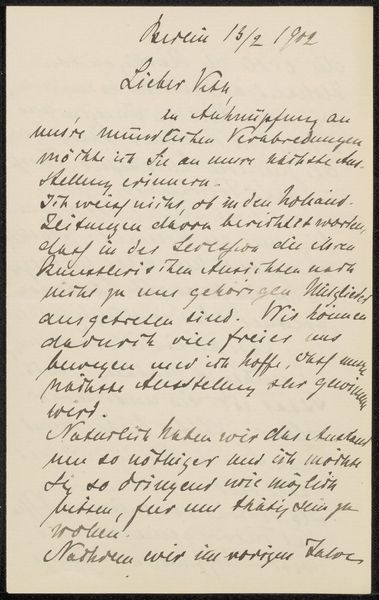 Berlin 13/2 1902
Lieber Veth,
in Anknüpfung an
unsre mündlichen Verabredungen
möchte ich Sie an unsre nächste Aus-
stellung erinnern.
Ich weiss nicht, ob in den holländ.
Zeitungen davon berichtet worden,
dass in der Secession die ihren
künstlerischen Ansichten nach
nicht zu uns gehörigen Mitglieder
ausgetreten sind. Wir können
dadurch viel freier uns
bewegen und ich hoffe, dass unsre
nächste Ausstellung sehr gewinnen
wird.
Natürlich haben wir das Ausland
um so nöthiger und ich möchte
Sie so dringend wie möglich
bitten, für uns thätig sein zu
wollen.
Nachdem wir im vorigen Jahre